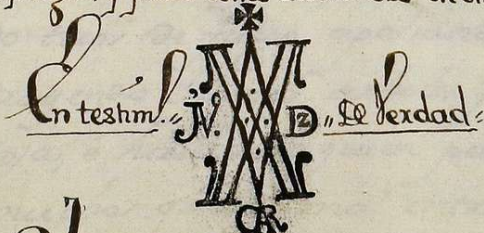 En testim.º JV. DZ de Verdad
CR